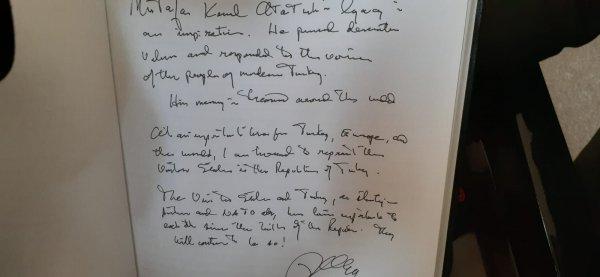 Mustafa Kemal Ataturk's legacy is
an inspiration. He pursued democratic
values and responded to the voices
of the people of modern Turkey.
His memory is treasured around the world
At an important time for Turkey, Europe, and
the world, I am honored to represent the
United States in the Republic of Turkey.
The United States and Turkey, as strategic
partners and NATO allies, have been important to
each other since the birth of the Republic. They
will continue to be so!